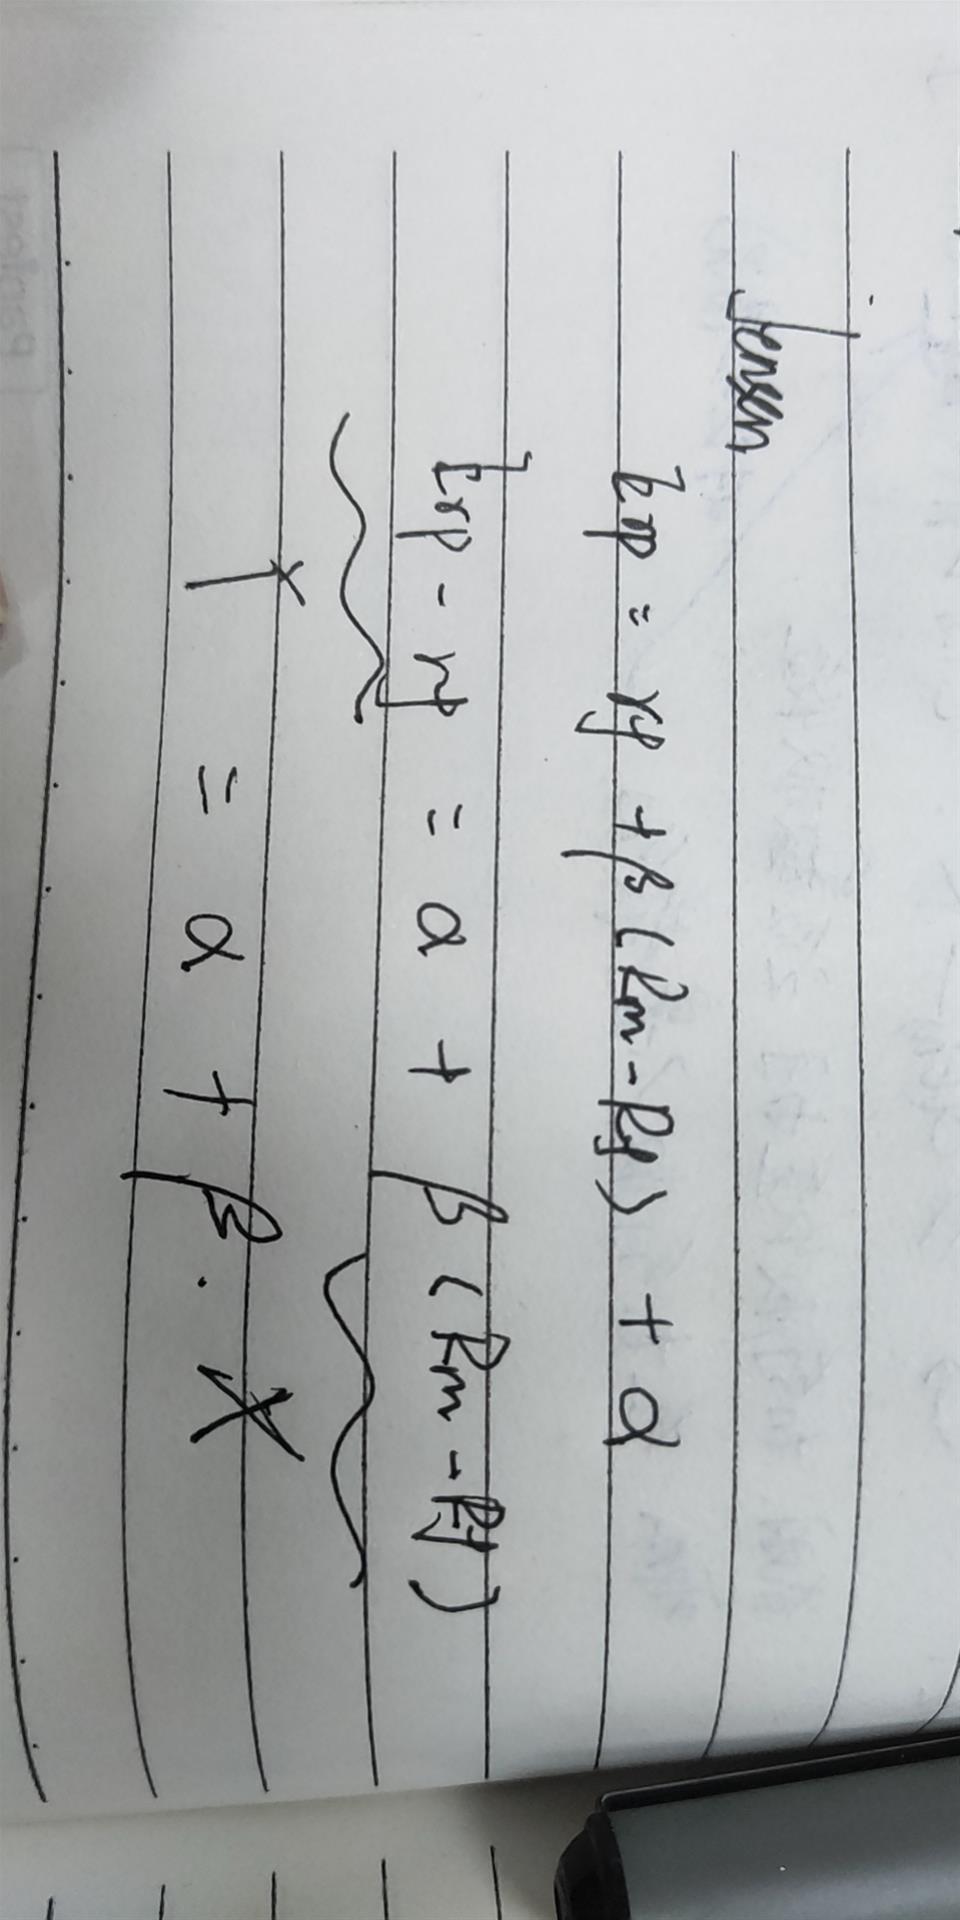 Jensen
Erp = rf + β(Rm - Rf) + α
Erp - rf = α + β (Rm - Rf)
Y = α + β · X